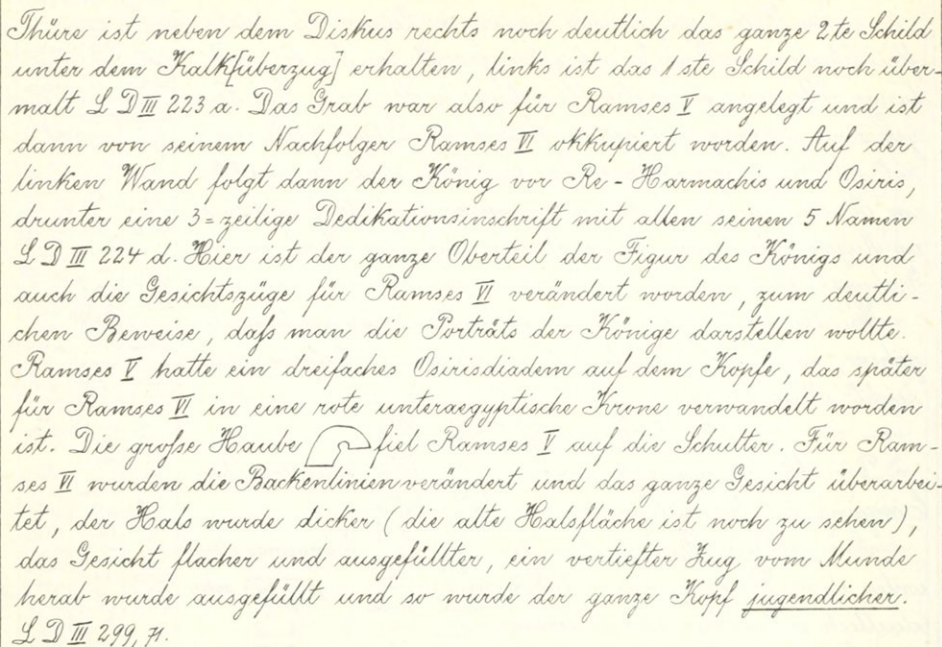 Thüre ist neben dem Diskus rechts noch deutlich das ganze 2te Schild
unter dem Kalk[überzug] erhalten, links ist das 1ste Schild noch über-
malt L D III 223 a. Das Grab war also für Ramses V angelegt und ist
dann von seinem Nachfolger Ramses VI okkupiert worden. Auf der
linken Wand folgt dann der König vor Re-Harmachis und Osiris,
drunter eine 3=zeilige Dedikationsinschrift mit allen seinen 5 Namen
L D III 224 d. Hier ist der ganze Oberteil der Figur des Königs und
auch die Gesichtszüge für Ramses VI verändert worden, zum deutli-
chen Beweise, daſs man die Porträts der Könige darstellen wollte.
Ramses V hatte ein dreifaches Osirisdiadem auf dem Kopfe, das später
für Ramses VI in eine rote unteraegyptische Krone verwandelt worden
ist. Die groſse Haube fiel Ramses V auf die Schulter. Für Ram-
ses VI wurden die Backenlinien verändert und das ganze Gesicht überarbei-
tet, der Hals wurde dicker (die alte Halsfläche ist noch zu sehen),
das Gesicht flacher und ausgefüllter, ein vertiefter Zug vom Munde
herab wurde ausgefüllt und so wurde der ganze Kopf jugendlicher.
L D III 299, 71.